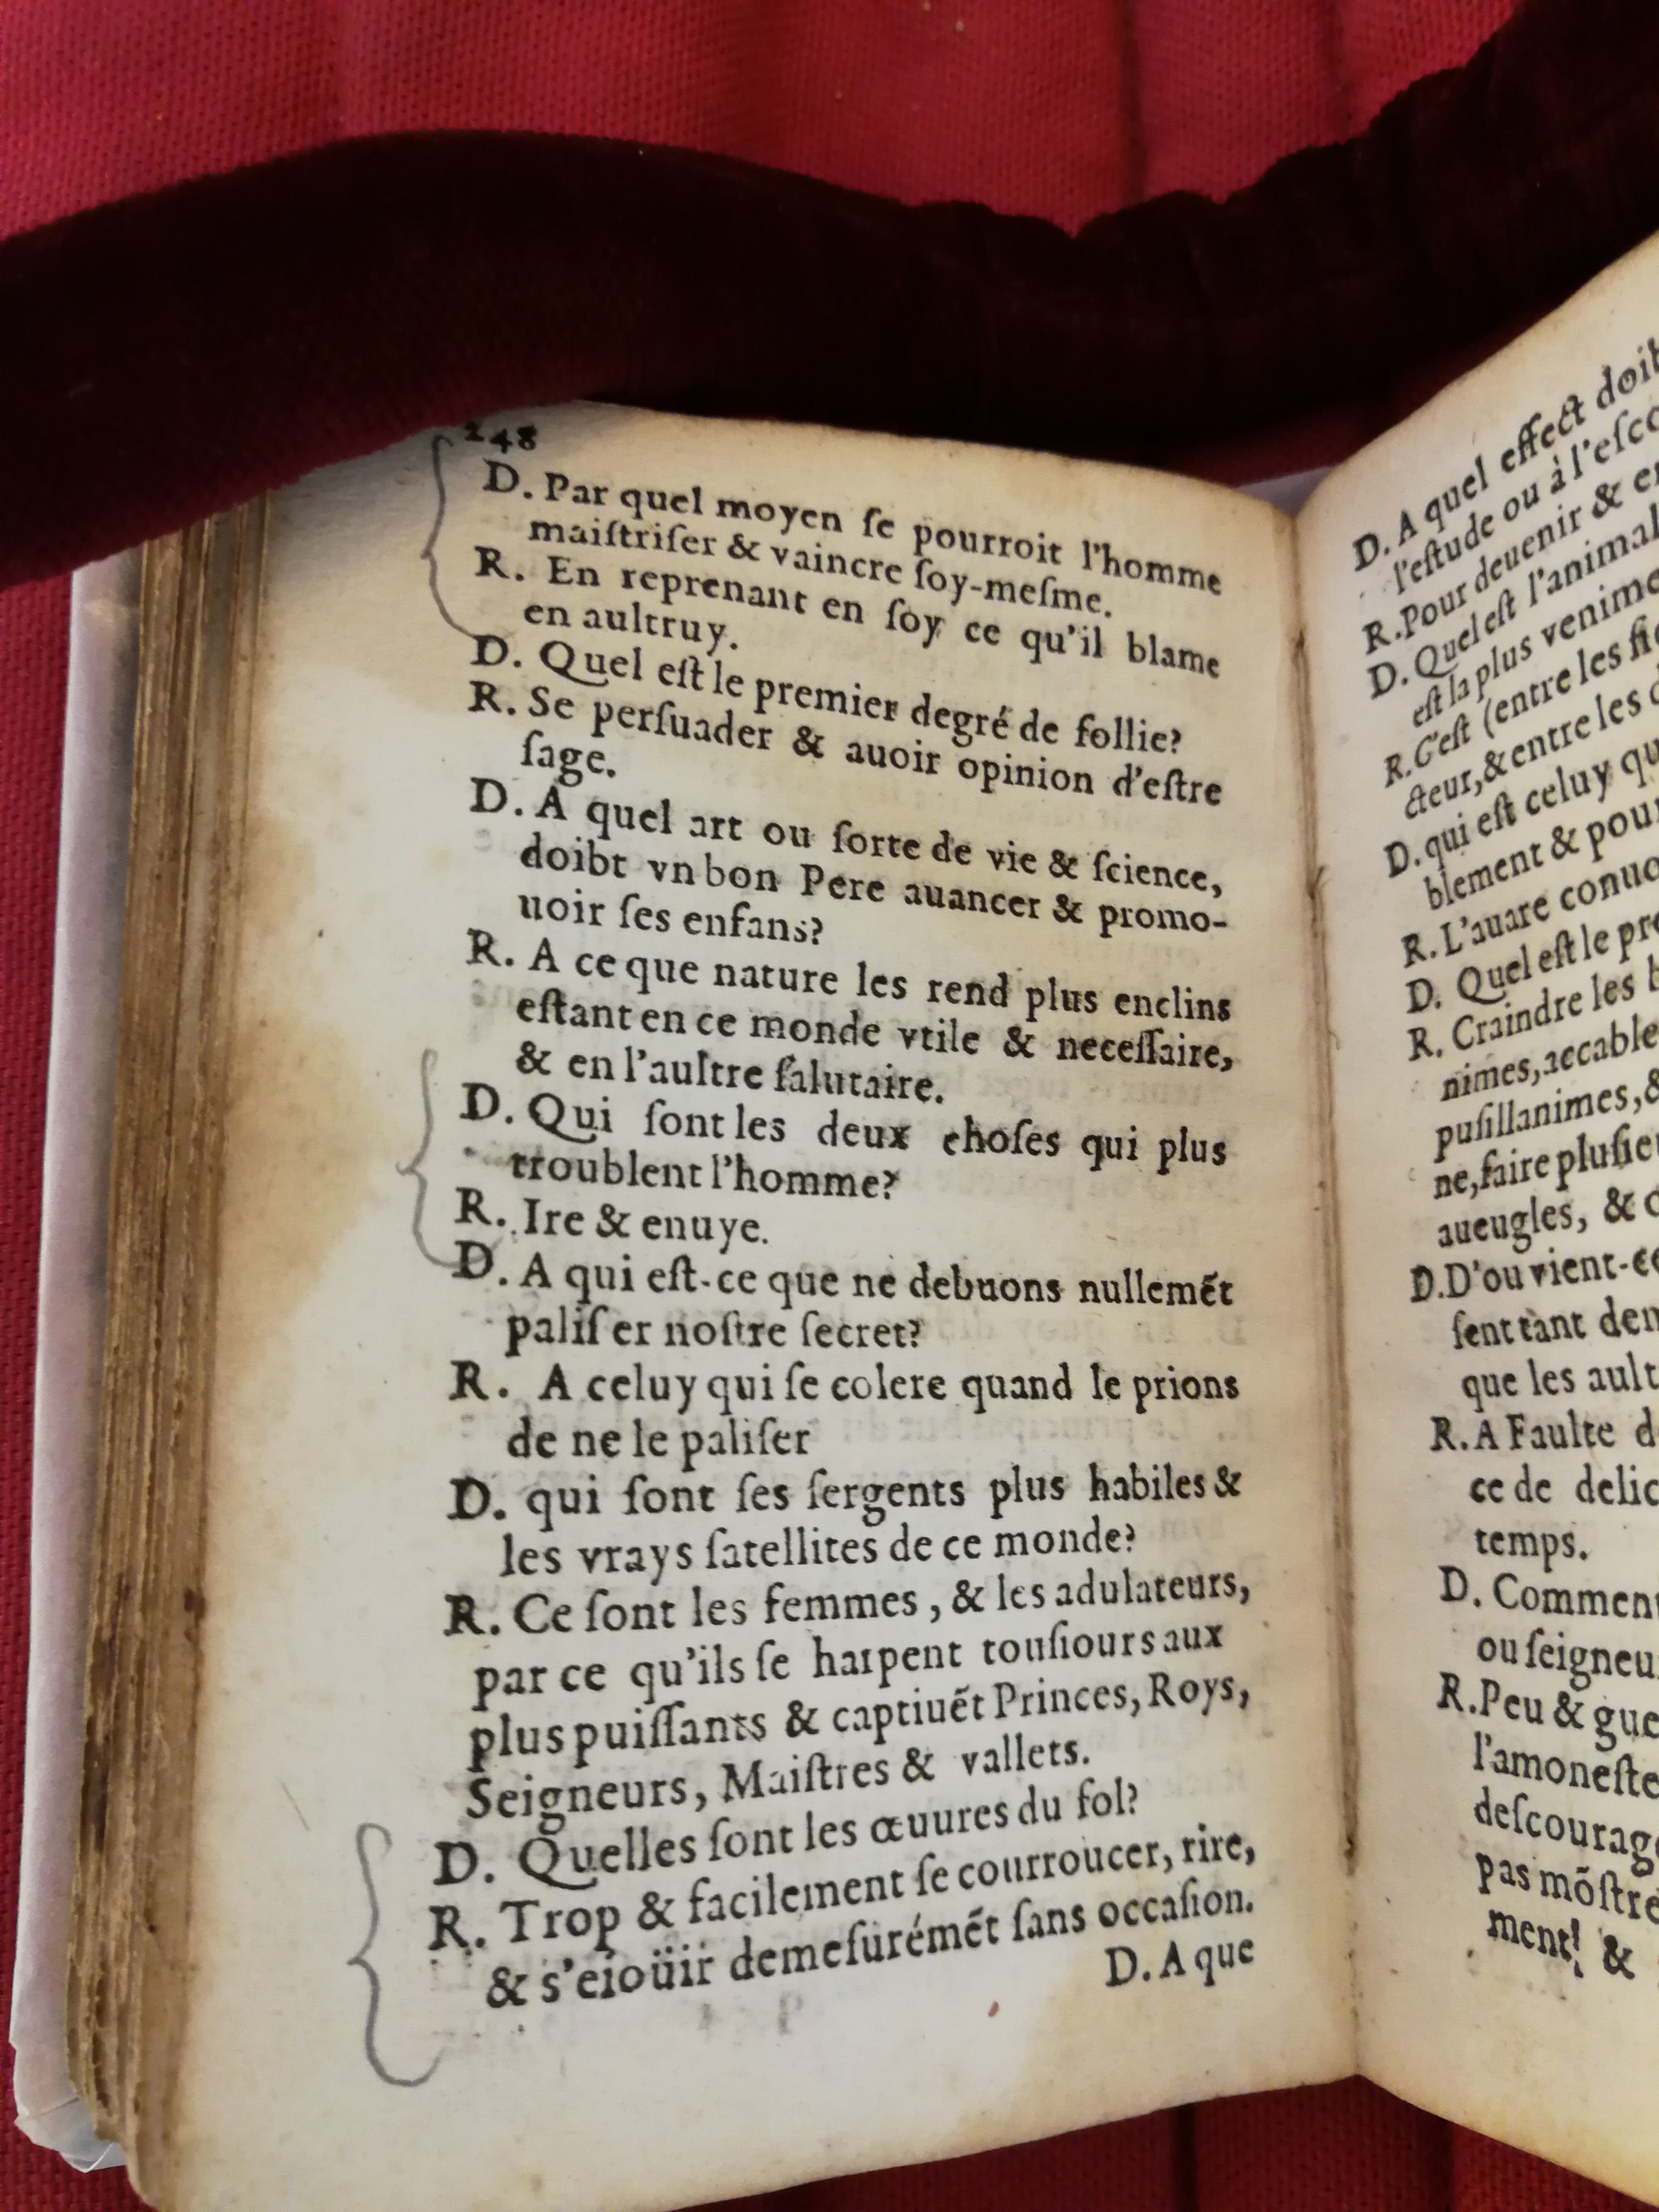 248
D. Par quel moyen ſe pourroit l'homme
maiſtriſer & vaincre ſoy-meſme.
R. En reprenant en ſoy ce qu'il blame
en aultruy.
D. Quel eſt le premier degré de follie?
R. Se perſuader & auoir opinion d'eſtre
ſage.
D. A quel art ou ſorte de vie & ſcience,
doibt vn bon Pere auancer & promo-
uoir ſes enfans?
R. A ce que nature les rend plus enclins
eſtant en ce monde vtile & neceſſaire,
& en l'aultre ſalutaire.
D. Qui ſont les deux choſes qui plus
troublent l'homme?
R. Ire & enuye.
D. A qui eſt-ce que ne debuons nullemẽt
paliſer noſtre ſecret?
R. A celuy qui ſe colere quand le prions
de ne le paliſer
D. qui ſont ſes ſergents plus habiles &
les vrays ſatellites de ce monde?
R. Ce ſont les femmes, & les adulateurs,
par ce qu'ils ſe harpent touſiours aux
plus puiſſants & captiuẽt Princes, Roys,
Seigneurs, Maiſtres & vallets.
D. Quelles ſont les œuures du fol?
R. Trop & facilement ſe courroucer, rire,
& s'eioüir demeſurémẽt ſans occaſion.
D. A que
D. A quel effect doit
l'eſtude ou à l'eſco
R. Pour deuenir & e
D. Quel eſt l'animal
eſt la plus venime
R. C'eſt (entre les
cteur, & entre les
D. qui eſt celuy qu
blement & pour
R. L'auare conuo
D. Quel eſt le pr
R. Craindre les
nimes, accable
puſillanimes, &
ne, faire pluſieu
aueugles, &
D. D'ou vient-ce
ſent tant den
que les ault
R. A Faulte d
ce de delic
temps.
D. Commen
ou ſeigneu
R. Peu & gue
l'amoneſte
deſcourag
pas mõſtre
ment! &